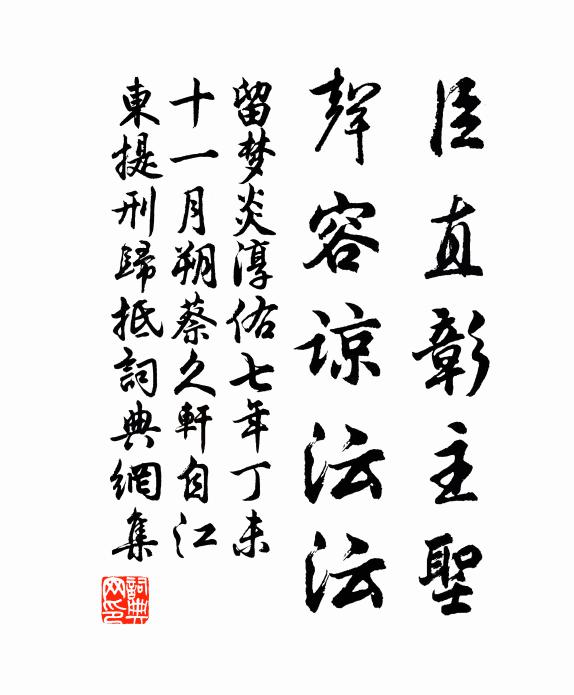 臣直彰主聖
聲容諒沄沄
留梦炎淳佑七年丁未
十一月朔蔡久軒自江
東提刑歸抵詞典網集
詞典
网印